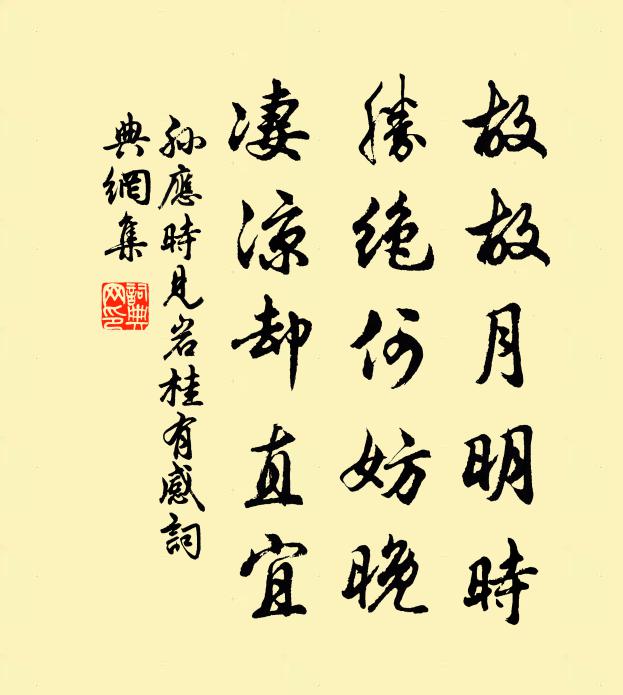 故故月明時
勝絶何妨晚
凄涼却直宜
孫應時見岩桂有感詞
典網集
詞典
网印